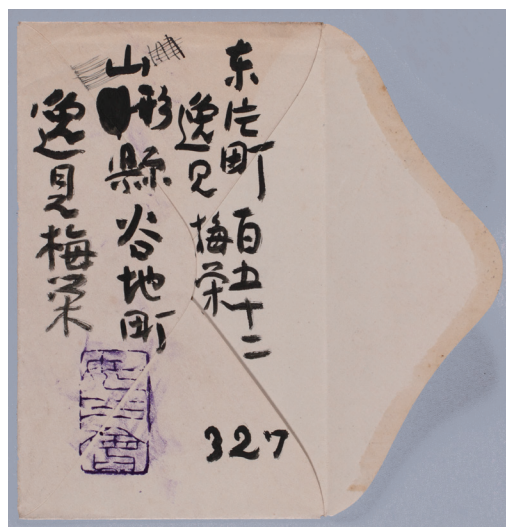 东片町 百五十二
逸見 梅栄
山形縣谷地町
逸見梅栄
327